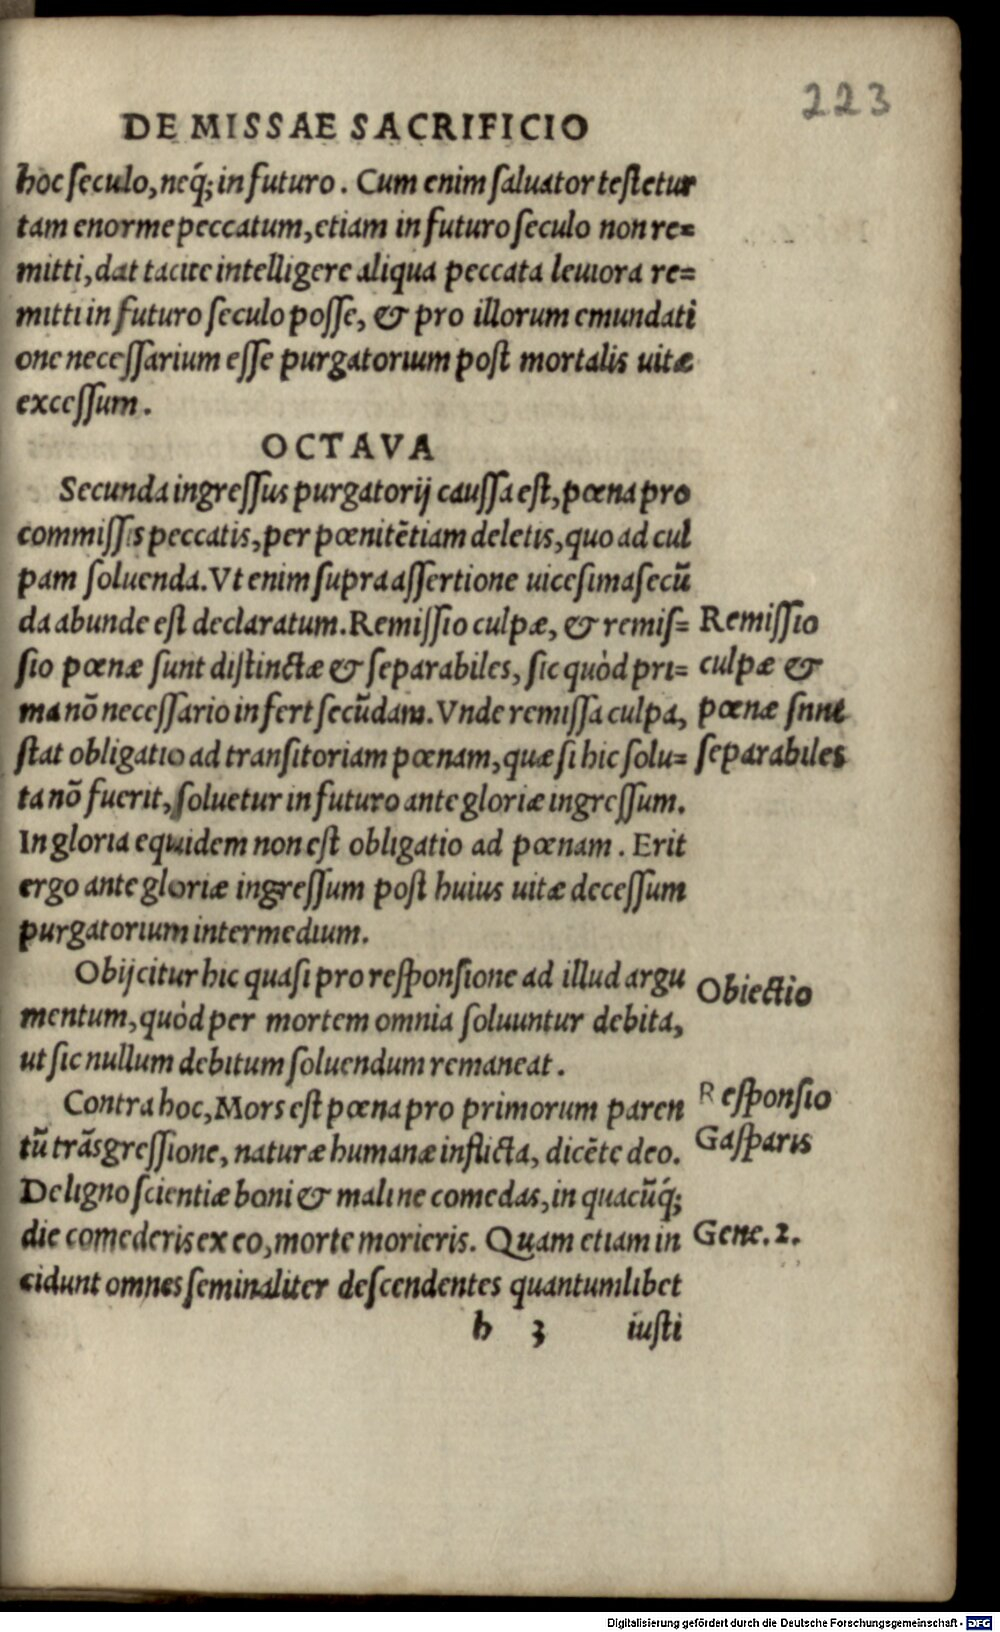 223
DE MISSAE SACRIFICIO
hoc seculo, neq́; in futuro. Cum enim saluator testetur
tam enorme peccatum, etiam in futuro seculo non re=
mitti, dat tacite intelligere aliqua peccata leuiora re=
mitti in futuro seculo posse, & pro illorum emundati
one necessarium esse purgatorium post mortalis uitæ
excessum.
OCTAVA
Secunda ingressus purgatorij caussa est, pœna pro
commissis peccatis, per pœnitẽtiam deletis, quo ad cul
pam soluenda. Vt enim supra assertione uicesima secũ
da abunde est declaratum. Remissio culpæ, & remis=
sio pœnæ sunt distinctæ & separabiles, sic quòd pri=
ma nõ necessario infert secũdam. Vnde remissa culpa,
stat obligatio ad transitoriam pœnam, quæ si hic solu=
ta nõ fuerit, soluetur in futuro ante gloriæ ingressum.
In gloria equidem non est obligatio ad pœnam. Erit
ergo ante gloriæ ingressum post huius uitæ decessum
purgatorium intermedium.
Remissio
culpæ &
pœnæ snnt
separabiles
Obijcitur hic quasi pro responsione ad illud argu
mentum, quòd per mortem omnia soluuntur debita,
ut sic nullum debitum soluendum remaneat.
Obiectio
Contra hoc, Mors est pœna pro primorum paren
tũ trãsgressione, naturæ humanæ inflicta, dicẽte deo.
De ligno scientiæ boni & mali ne comedas, in quacũq́;
die comederis ex eo, morte morieris. Quam etiam in
cidunt omnes seminaliter descendentes quantumlibet
Responsio
Gasparis
Gene. 2.
h 3 iusti
Digitalisierung gefördert durch die Deutsche Forschungsgemeinschaft - DFG